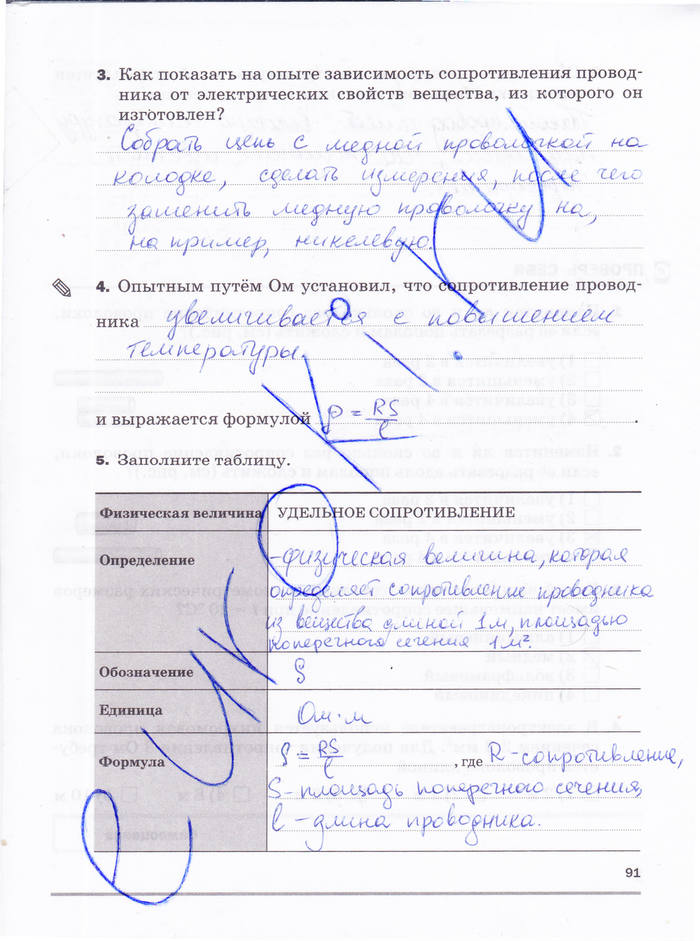 3. Как показать на опыте зависимость сопротивления провод-
ника от электрических свойств вещества, из которого он
изготовлен?
Собрать цепь с медной проволочкой на
колодке, сделать измерения, после чего
заменить медную проволочку на,
на пример, никелевую.
4. Опытным путём Ом установил, что сопротивление провод-
ника увеличивается с повышением
температуры.
и выражается формулой ρ = RS/l .
5. Заполните таблицу.
Физическая величина УДЕЛЬНОЕ СОПРОТИВЛЕНИЕ
Определение -физическая величина, которая
определяет сопротивление проводника
из вещества длиной 1м, площадью
поперечного сечения 1м².
Обозначение ρ
Единица Ом·м
Формула ρ = RS/l , где R-сопротивление,
S-площадь поперечного сечения,
l-длина проводника.
91